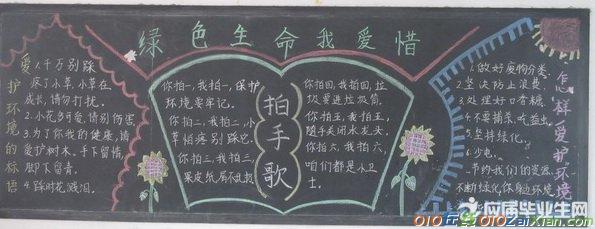 绿色生命我爱惜
爱护环境的标语
1.千万别踩
疼了小草,小草在
成长,请勿打扰。
2.小花多可爱,请别伤害
3.为了你我的健康,请
爱护树木。手下留情,
脚下留青。
4.踩时花溅泪。
拍手歌
你拍一,我拍一,保护
环境要牢记。
你拍二,我拍二,小
草怕疼别踩它。
你拍三,我拍三,
果皮纸屑不乱扔
你拍四,我拍四,垃
圾要进垃圾筒。
你拍五,我拍五,
随手关闭水龙头。
你拍六,我拍六,
咱们都是小卫
士。
怎样爱护环境
1.做好废物分类
2.坚决防止浪费。
3.处理好口香糖。
4.不要捕杀、吃益虫。
5.坚持绿化。
6.少电
节约我们的资源
不断绿化你身边环境
应届毕业生网
010在线 010ZaiXian.com